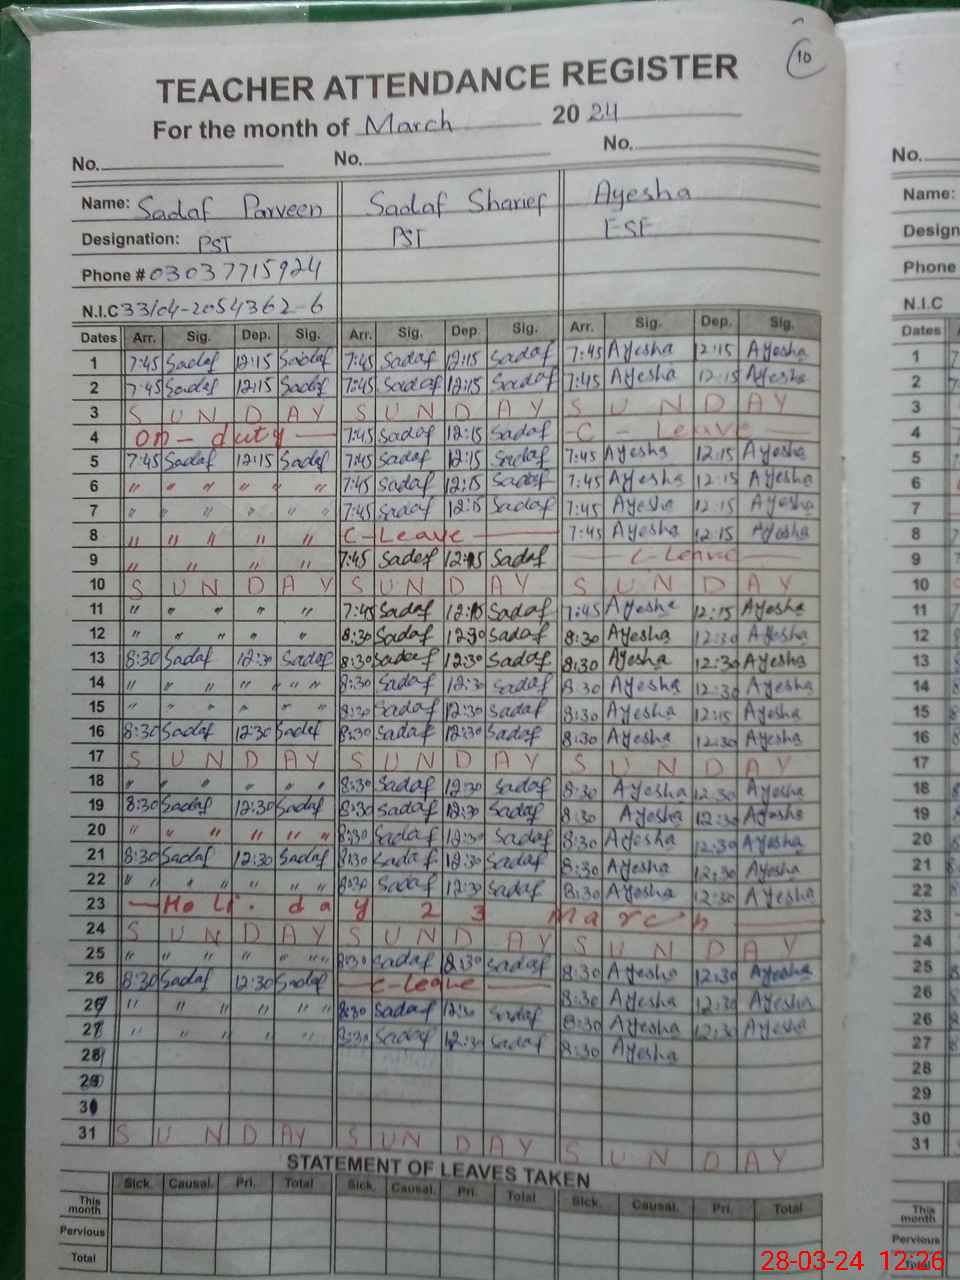 10
TEACHER ATTENDANCE REGISTER
For the month of March 2024
No. No. No.
Name: Sadaf Parveen Sadaf Sharief Ayesha
Designation: PST PST ESE
Phone # 03037715924
N.I.C 33104-2054362-6
Dates Arr. Sig. Dep. Sig. Arr. Sig. Dep. Sig. Arr. Sig. Dep. Sig.
1 7:45 Sadaf 12:15 Sadaf 7:45 Sadaf 12:15 Sadaf 7:45 Ayesha 12:15 Ayesha
2 7:45 Sadaf 12:15 Sadaf 7:45 Sadaf 12:15 Sadaf 7:45 Ayesha 12:15 Ayesha
3 S U N D A Y S U N D A Y S U N D A Y
4 On - duty 7:45 Sadaf 12:15 Sadaf - C - Leave
5 7:45 Sadaf 12:15 Sadaf 7:45 Sadaf 12:15 Sadaf 7:45 Ayesha 12:15 Ayesha
6 " " " " " 7:45 Sadaf 12:15 Sadaf 7:45 Ayesha 12:15 Ayesha
7 " " " " " 7:45 Sadaf 12:15 Sadaf 7:45 Ayesha 12:15 Ayesha
8 " " " " " C-Leave 7:45 Ayesha 12:15 Ayesha
9 " " " " 7:45 Sadaf 12:15 Sadaf C-Leave
10 S U N D A Y S U N D A Y S U N D A Y
11 " " " " " 7:45 Sadaf 12:15 Sadaf 7:45 Ayesha 12:15 Ayesha
12 " " " " " 8:30 Sadaf 12:30 Sadaf 8:30 Ayesha 12:30 Ayesha
13 8:30 Sadaf 12:30 Sadaf 8:30 Sadaf 12:30 Sadaf 8:30 Ayesha 12:30 Ayesha
14 " " " " " " 8:30 Sadaf 12:30 Sadaf 8:30 Ayesha 12:30 Ayesha
15 " " " " " 8:30 Sadaf 12:30 Sadaf 8:30 Ayesha 12:15 Ayesha
16 8:30 Sadaf 12:30 Sadaf 8:30 Sadaf 12:30 Sadaf 8:30 Ayesha 12:30 Ayesha
17 S U N D A Y S U N D A Y S U N D A Y
18 " " " " " 8:30 Sadaf 12:30 Sadaf 8:30 Ayesha 12:30 Ayesha
19 8:30 Sadaf 12:30 Sadaf 8:30 Sadaf 12:30 Sadaf 8:30 Ayesha 12:30 Ayesha
20 " " " " " " 8:30 Sadaf 12:30 Sadaf 8:30 Ayesha 12:30 Ayesha
21 8:30 Sadaf 12:30 Sadaf 8:30 Sadaf 12:30 Sadaf 8:30 Ayesha 12:30 Ayesha
22 " " " " " " 8:30 Sadaf 12:30 Sadaf 8:30 Ayesha 12:30 Ayesha
23 Holi. day 23 March
24 S U N D A Y S U N D A Y S U N D A Y
25 " " " " " " 8:30 Sadaf 8:30 Sadaf 8:30 Ayesha 12:30 Ayesha
26 8:30 Sadaf 12:30 Sadaf C-Leave 8:30 Ayesha 12:30 Ayesha
27 " " " " " 8:30 Sadaf 12:30 Sadaf 8:30 Ayesha 12:30 Ayesha
" " " " 8:30 Sadaf 12:30 Sadaf 8:30 Ayesha
28
29
30
31 S U N D A Y S U N D A Y S U N D A Y
STATEMENT OF LEAVES TAKEN
Sick. Causal. Pri. Total Sick. Causal. Pri. Total Sick. Causal. Pri. Total
This month
Pervious
Total
No.
Name:
Design
Phone
N.I.C
Dates
1
2
3
4
5
6
7
8
9
10
11
12
13
14
15
16
17
18
19
20
21
22
23
24
25
26
26
27
28
29
30
31
This month
Pervious
Total
28-03-24 12:26